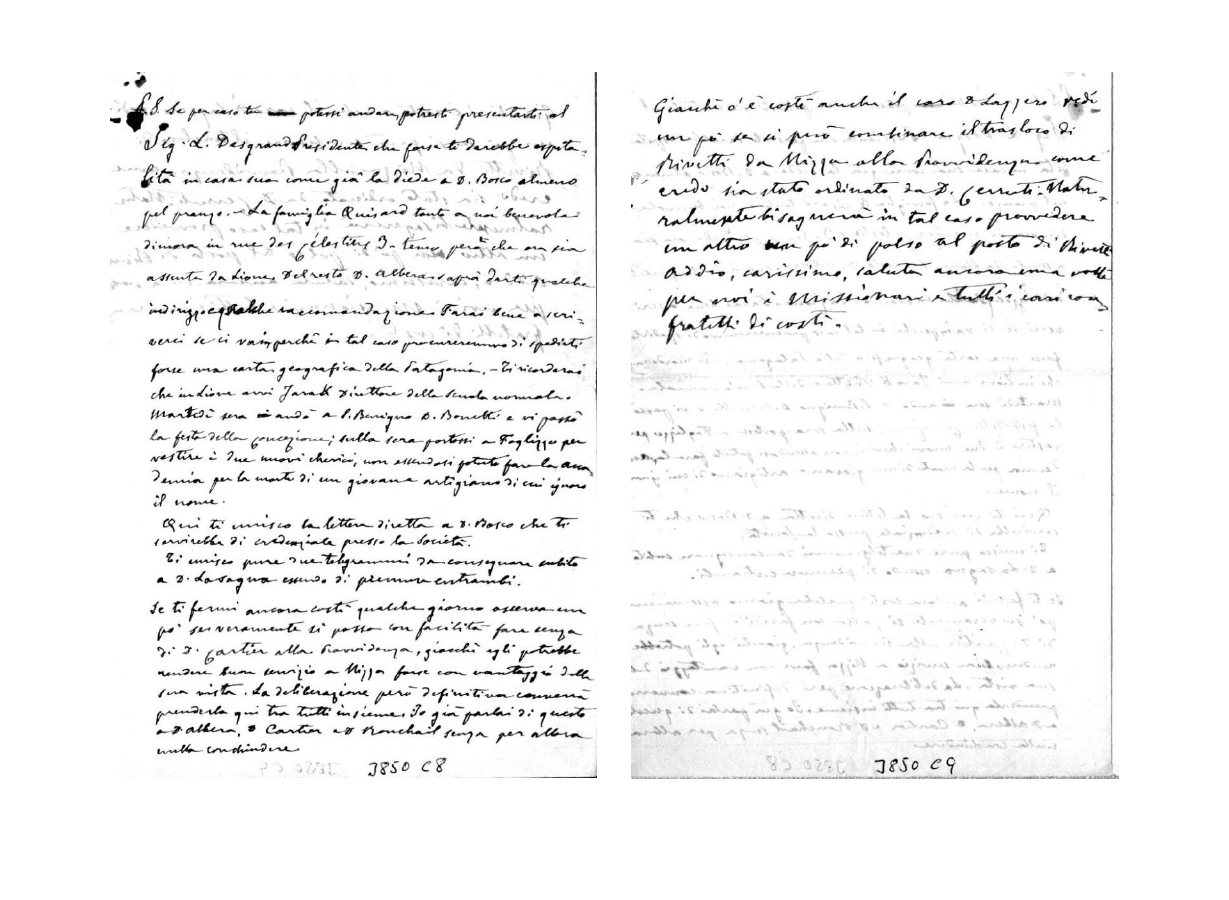 P.S. Se per caso tu potessi andare, potresti presentarti al
Sig. L. Desgrand Presidente che forse ti darebbe ospita-
lità in casa sua come già la diede a D. Bosco almeno
pel pranzo. - La famiglia Quisard tanto a noi benevola
dimora in rue des Célestins 3. temo però che ora sia
assente da Lione. Del resto D. Albera saprà darti qualche
indirizzo e qualche raccomandazione. Farai bene a scri-
verci se ci vai, perchè in tal caso procureremmo di spedirti
forse una carta geografica della Patagonia. - Ti ricorderai
che in Lione avvi Jarak Direttore della Scuola normale.
Martedì sera andò a S. Benigno D. Bonetti e vi passò
la festa della Concezione; sulla sera portossi a Foglizzo per
vestire i due nuovi chierici, non essendosi potuto fare la acca
demia per la morte di un giovane artigiano di cui ignoro
il nome.
Qui ti unisco la lettera diretta a D. Bosco che ti
servirebbe di credenziale presso la Società.
Ti unisco pure due telegrammi da consegnare subito
a D. Lasagna essendo di premura entrambi.
Se ti fermi ancora costì qualche giorno osserva un
po' se veramente si possa con facilità fare senza
di D. Cartier alla Provvidenza, giacchè egli potrebbe
rendere buon servizio a Nizza forse con vantaggio della
sua vista. La deliberazione però definitiva converrà
prenderla qui tra tutti insieme. Io già parlai di questo
a D Albera, D Cartier e D Ronchail senza per allora
nulla conchiudere
J850 C8
Giacchè c'è costì anche il caro D Lazzero vedi
un pò se si può combinare il trasloco di
Rivetti da Nizza alla Provvidenza come
credo sia stato ordinato da D. Cerruti. Natu-
ralmente bisognerà in tal caso provvedere
un altro un pò di polso al posto di Rivetti
Addio, carissimo, saluta ancora una volta
per noi i Missionari e tutti i cari con
fratelli di costì.
J850 C9